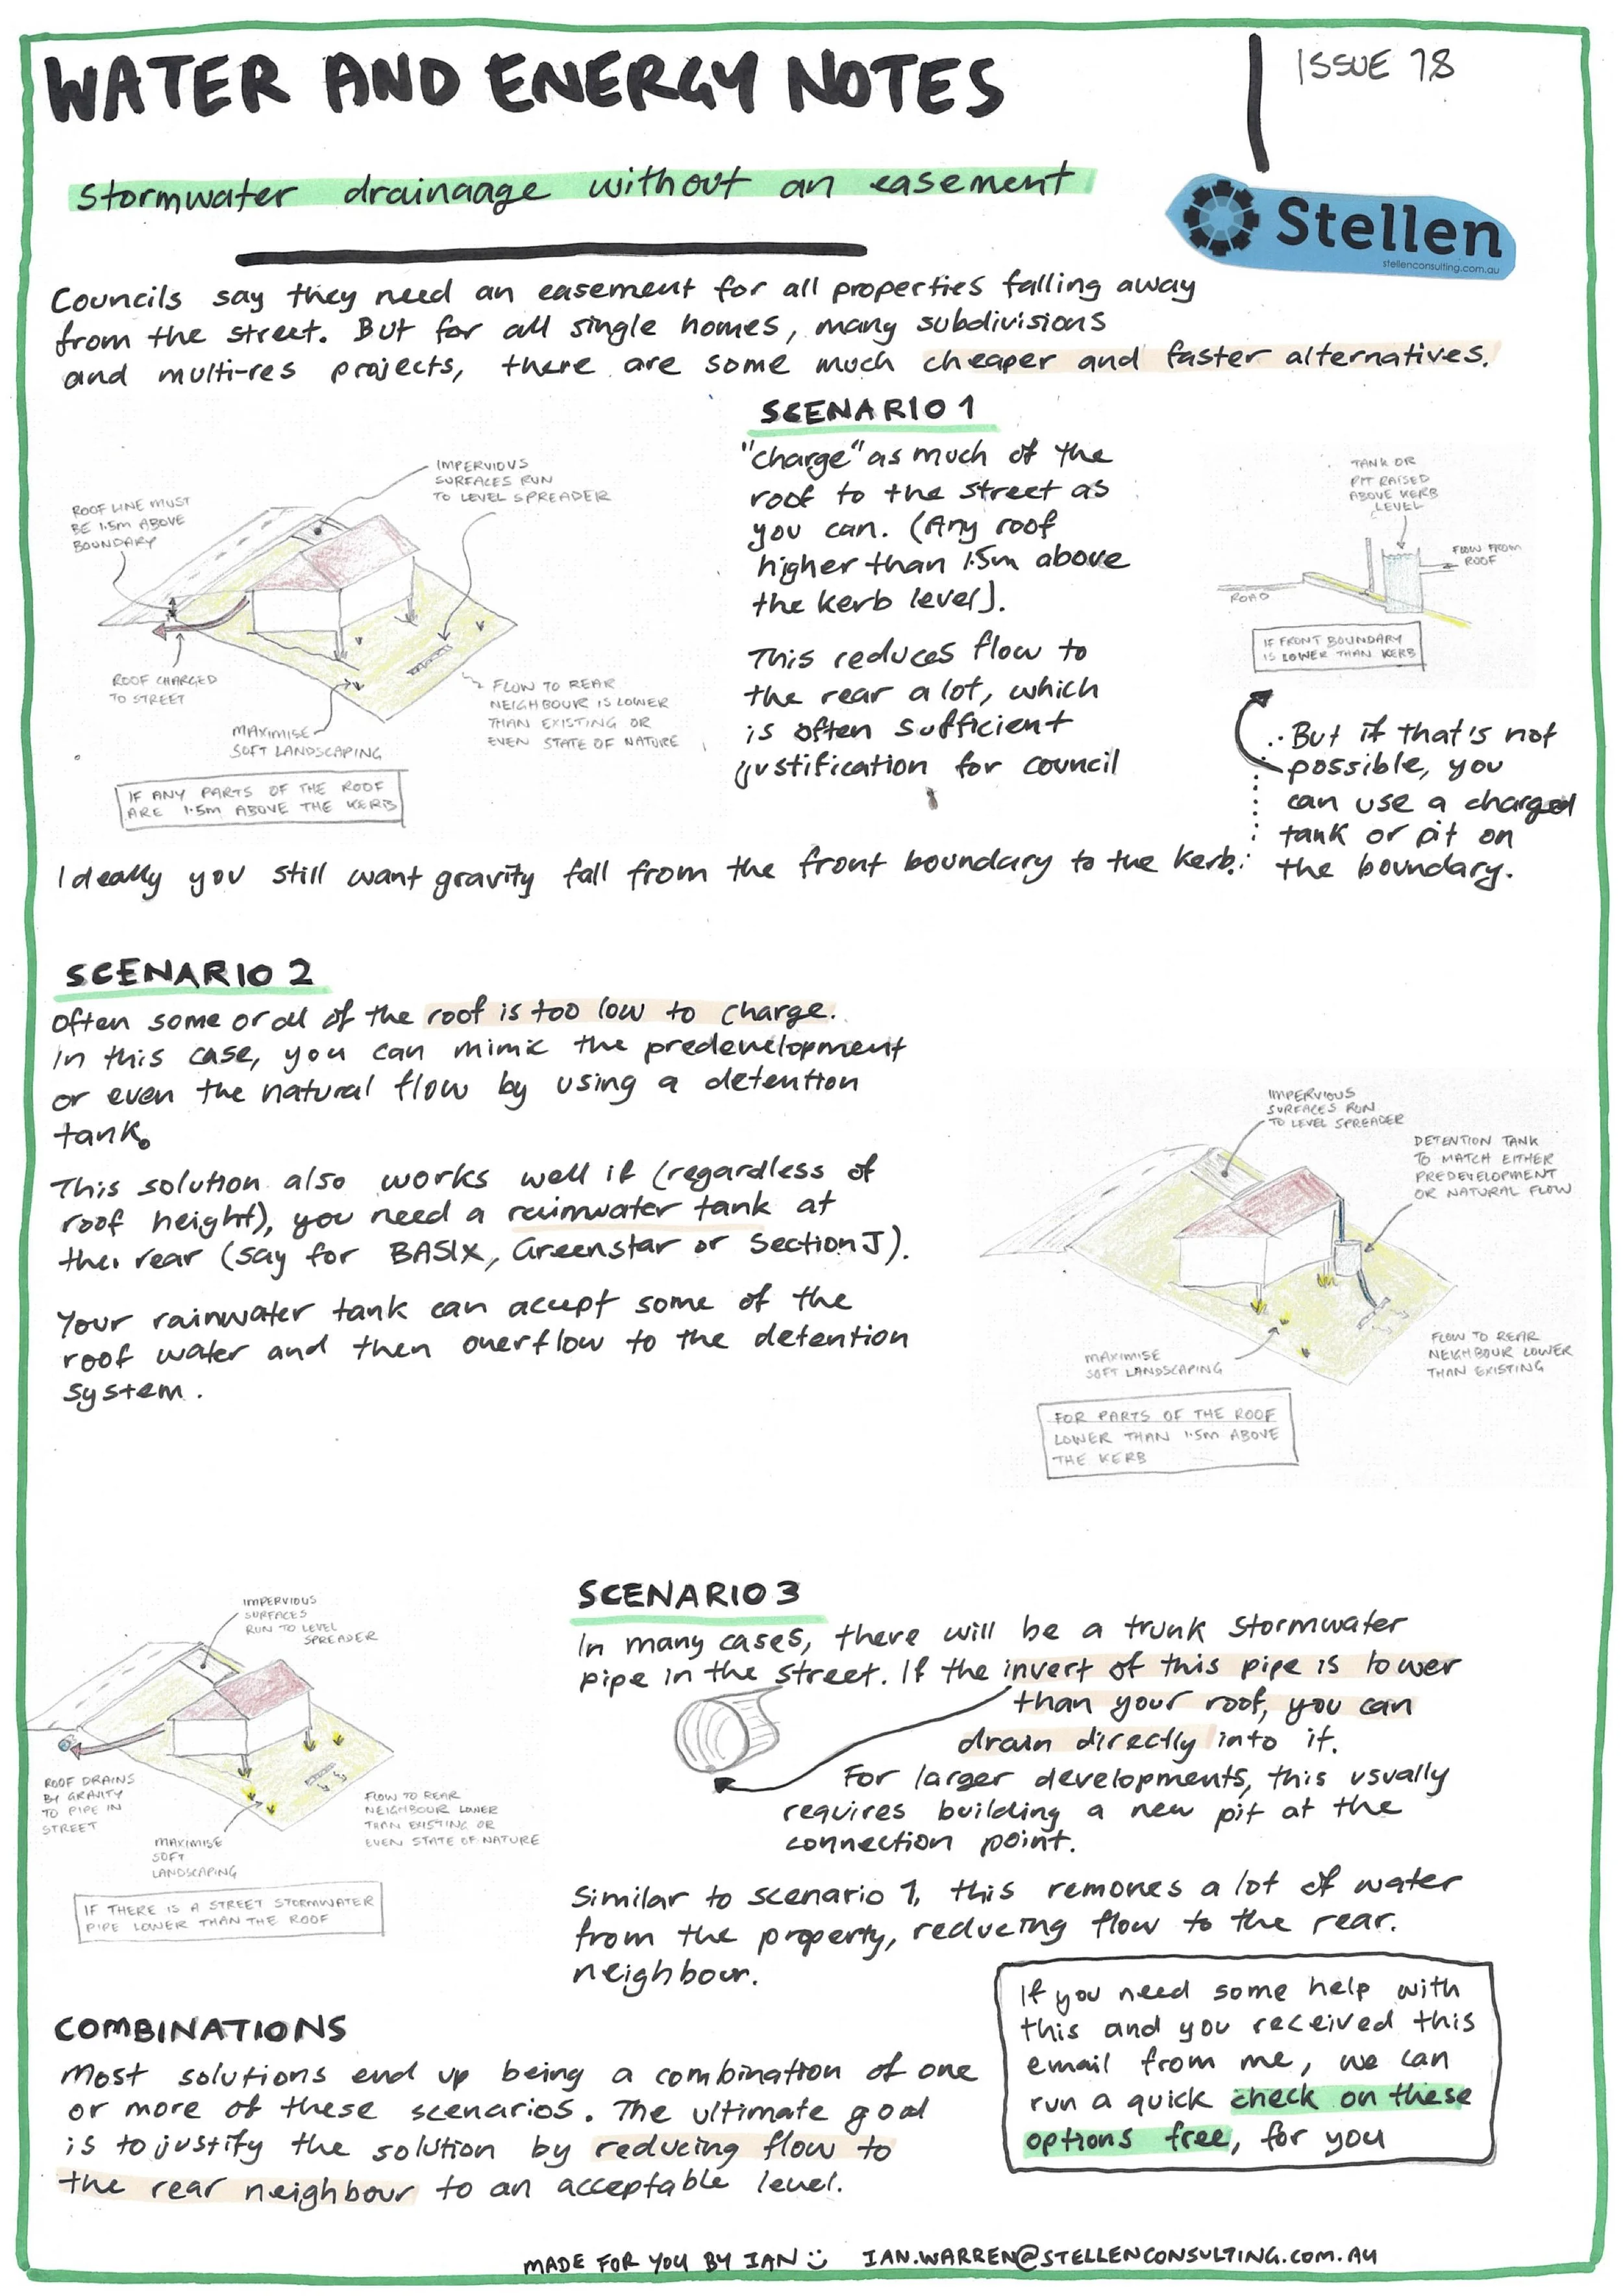 WATER AND ENERGY NOTES
ISSUE 78
stormwater drainaage without an easement
Stellen
stellenconsulting.com.au
Councils say they need an easement for all properties falling away
from the street. But for all single homes, many subdivisions
and multi-res projects, there are some much cheaper and faster alternatives.
ROOF LINE MUST
BE 1.5m ABOVE
BOUNDARY
IMPERVIOUS
SURFACES RUN
TO LEVEL SPREADER
ROOF CHARGED
TO STREET
MAXIMISE
SOFT LANDSCAPING
FLOW TO REAR
NEIGHBOUR IS LOWER
THAN EXISTING OR
EVEN STATE OF NATURE
IF ANY PARTS OF THE ROOF
ARE 1.5m ABOVE THE KERB
SCENARIO 1
"charge" as much of the
roof to the street as
you can. (Any roof
higher than 1.5m above
the kerb level).
This reduces flow to
the rear a lot, which
is often sufficient
justification for council
TANK OR
PIT RAISED
ABOVE KERB
LEVEL
FLOW FROM
ROOF
ROAD
IF FRONT BOUNDARY
IS LOWER THAN KERB
Ideally you still want gravity fall from the front boundary to the kerb.
But if that's not
possible, you
can use a charged
tank or pit on
the boundary.
SCENARIO 2
Often some or all of the roof is too low to charge.
In this case, you can mimic the predevelopment
or even the natural flow by using a detention
tank.
This solution also works well if (regardless of
roof height), you need a rainwater tank at
the rear (say for BASIX, Greenstar or Section J).
Your rainwater tank can accept some of the
roof water and then overflow to the detention
system.
IMPERVIOUS
SURFACES RUN
TO LEVEL SPREADER
DETENTION TANK
TO MATCH EITHER
PREDEVELOPMENT
OR NATURAL FLOW
MAXIMISE
SOFT LANDSCAPING
FLOW TO REAR
NEIGHBOUR LOWER
THAN EXISTING
FOR PARTS OF THE ROOF
LOWER THAN 1.5m ABOVE
THE KERB
IMPERVIOUS
SURFACES
RUN TO LEVEL
SPREADER
ROOF DRAINS
BY GRAVITY
TO PIPE IN
STREET
MAXIMISE
SOFT
LANDSCAPING
FLOW TO REAR
NEIGHBOUR LOWER
THAN EXISTING OR
EVEN STATE OF NATURE
IF THERE IS A STREET STORMWATER
PIPE LOWER THAN THE ROOF
SCENARIO 3
In many cases, there will be a trunk stormwater
pipe in the street. If the invert of this pipe is lower
than your roof, you can
drain directly into it.
For larger developments, this usually
requires building a new pit at the
connection point.
Similar to scenario 1, this removes a lot of water
from the property, reducing flow to the rear.
neighbour.
COMBINATIONS
Most solutions end up being a combination of one
or more of these scenarios. The ultimate goal
is to justify the solution by reducing flow to
the rear neighbour to an acceptable level.
If you need some help with
this and you received this
email from me, we can
run a quick check on these
options free, for you
MADE FOR YOU BY IAN IAN.WARREN@STELLENCONSULTING.COM.AU